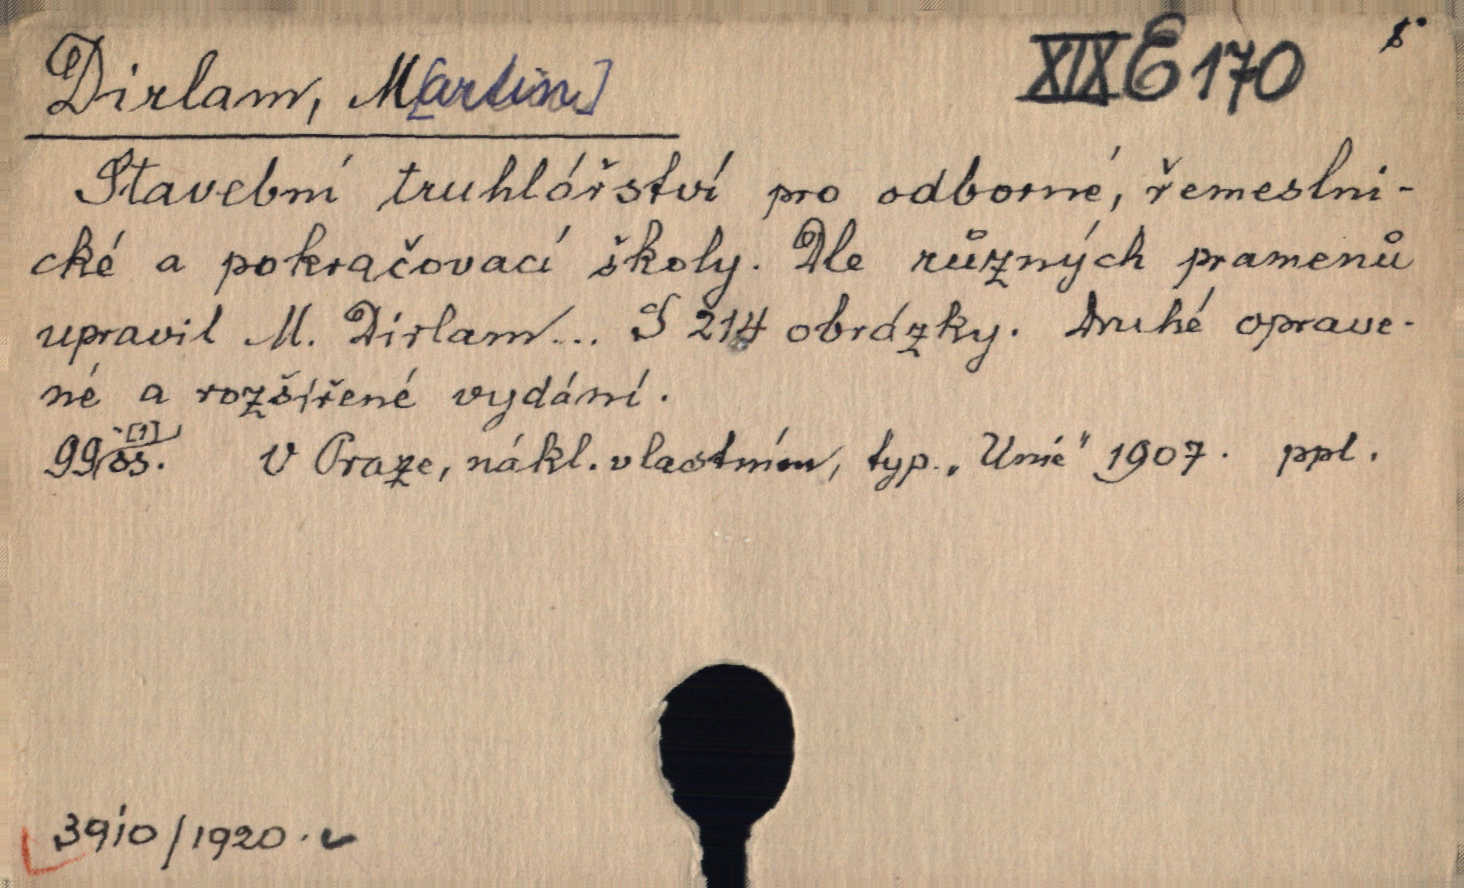 Dirlam, M[artin] XIX E 170 8°
Stavební truhlářství pro odborné, řemeslni-
cké a pokračovací školy. Dle různých pramenů
upravil M. Dirlam... S 214 obrázky. Druhé oprave-
né a rozšířené vydání.
99, [1] ss. V Praze, nákl. vlastním, typ. „Unie" 1907. ppl.
3910/1920.